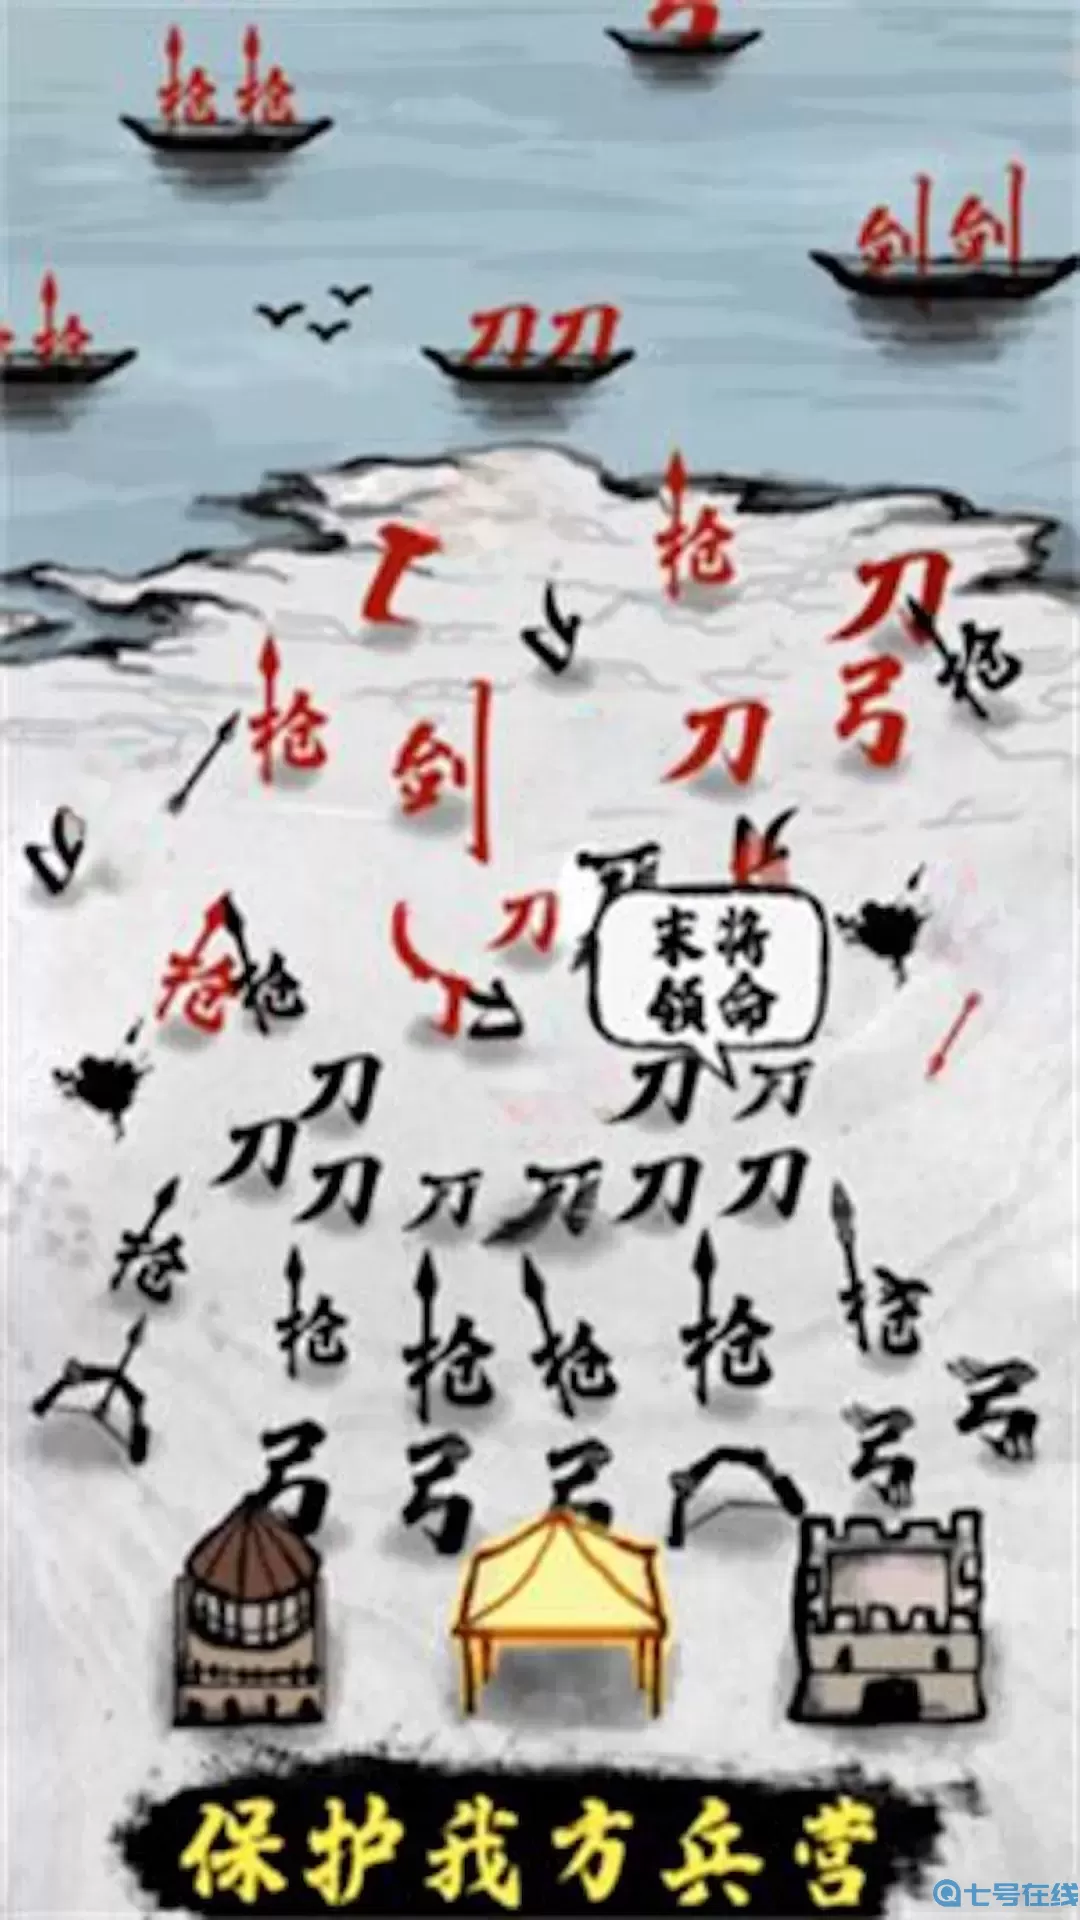 弓
枪 枪
剑 剑
枪
刀 刀
枪
刀
枪
弓
枪
剑
刀
刀
末将
领命
枪 枪
刀
刀 刀
刀
刀 刀 刀 刀
枪
枪 枪 枪 枪 枪
弓
弓 弓 弓 弓
保护我方兵营
七号在线